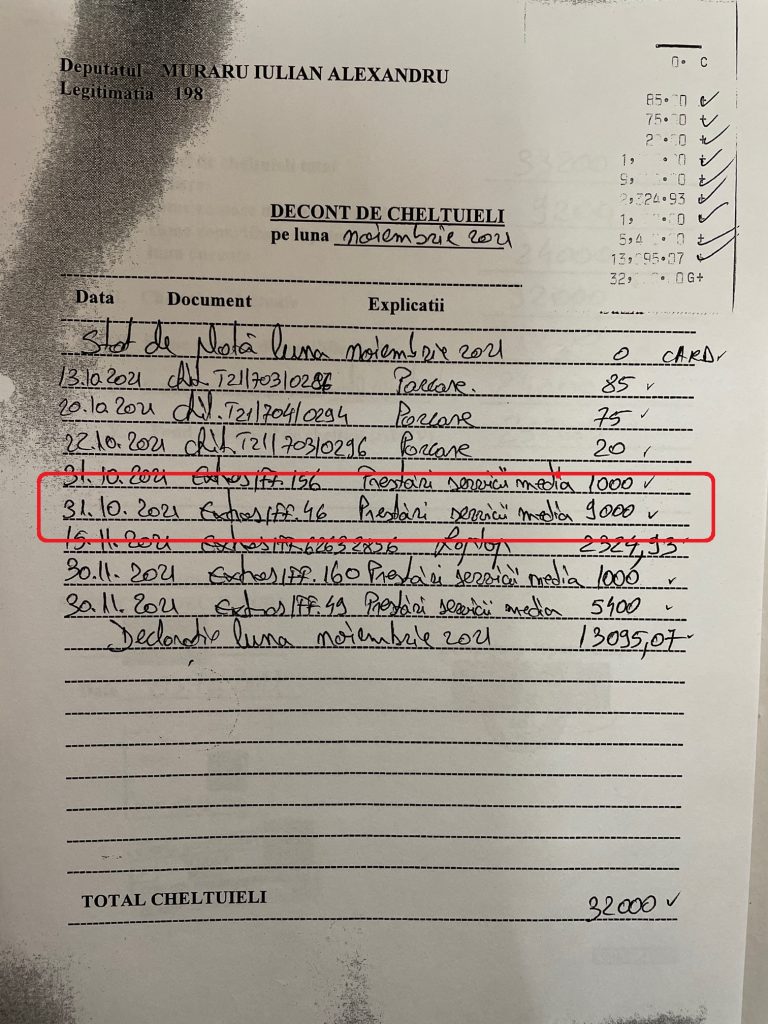 Deputatul MURARU IULIAN ALEXANDRU
Legitimatia 198
0. C
85.00
75.00
20.00
2,324.93
13,095.07
G+
DECONT DE CHELTUIELI
pe luna noiembrie 2021
Data Document Explicatii
Stat de plată luna noiembrie 2021 0 CARD
13.10 2021 chit. T21/703/0286 Parcare. 85
20.10 2021 chit. T21/704/0294 Parcare 75
22.10.2021 chit. T21/703/0296 Parcare 20
31.10.2021 Extras/FF.156 Prestări servicii media 1000
31.10.2021 Extras/FF.46 Prestări servicii media 9000
15.11.2021 Extras/FF.62632856 2324,93
30.11.2021 Extras/FF.160 Prestări servicii media 1000
30.11.2021 Extras/FF.49 Prestări servicii media 5400
Declarație luna noiembrie 2021 13095,07
TOTAL CHELTUIELI 32000